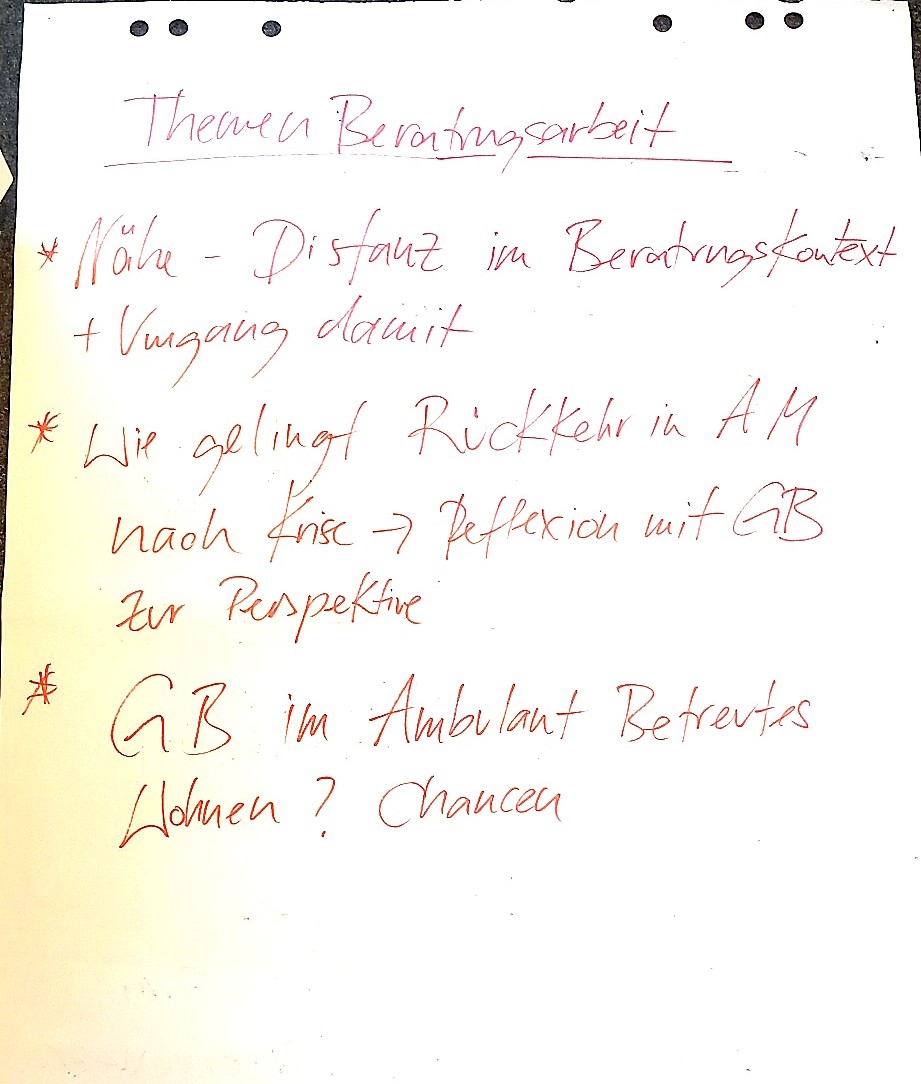 Themen Beratungsarbeit
* Nähe - Distanz im Beratungskontext
+ Umgang damit
* Wie gelingt Rückkehr in AM
nach Krise → Reflexion mit GB
zur Perspektive
* GB im Ambulant Betreutes
Wohnen? Chancen